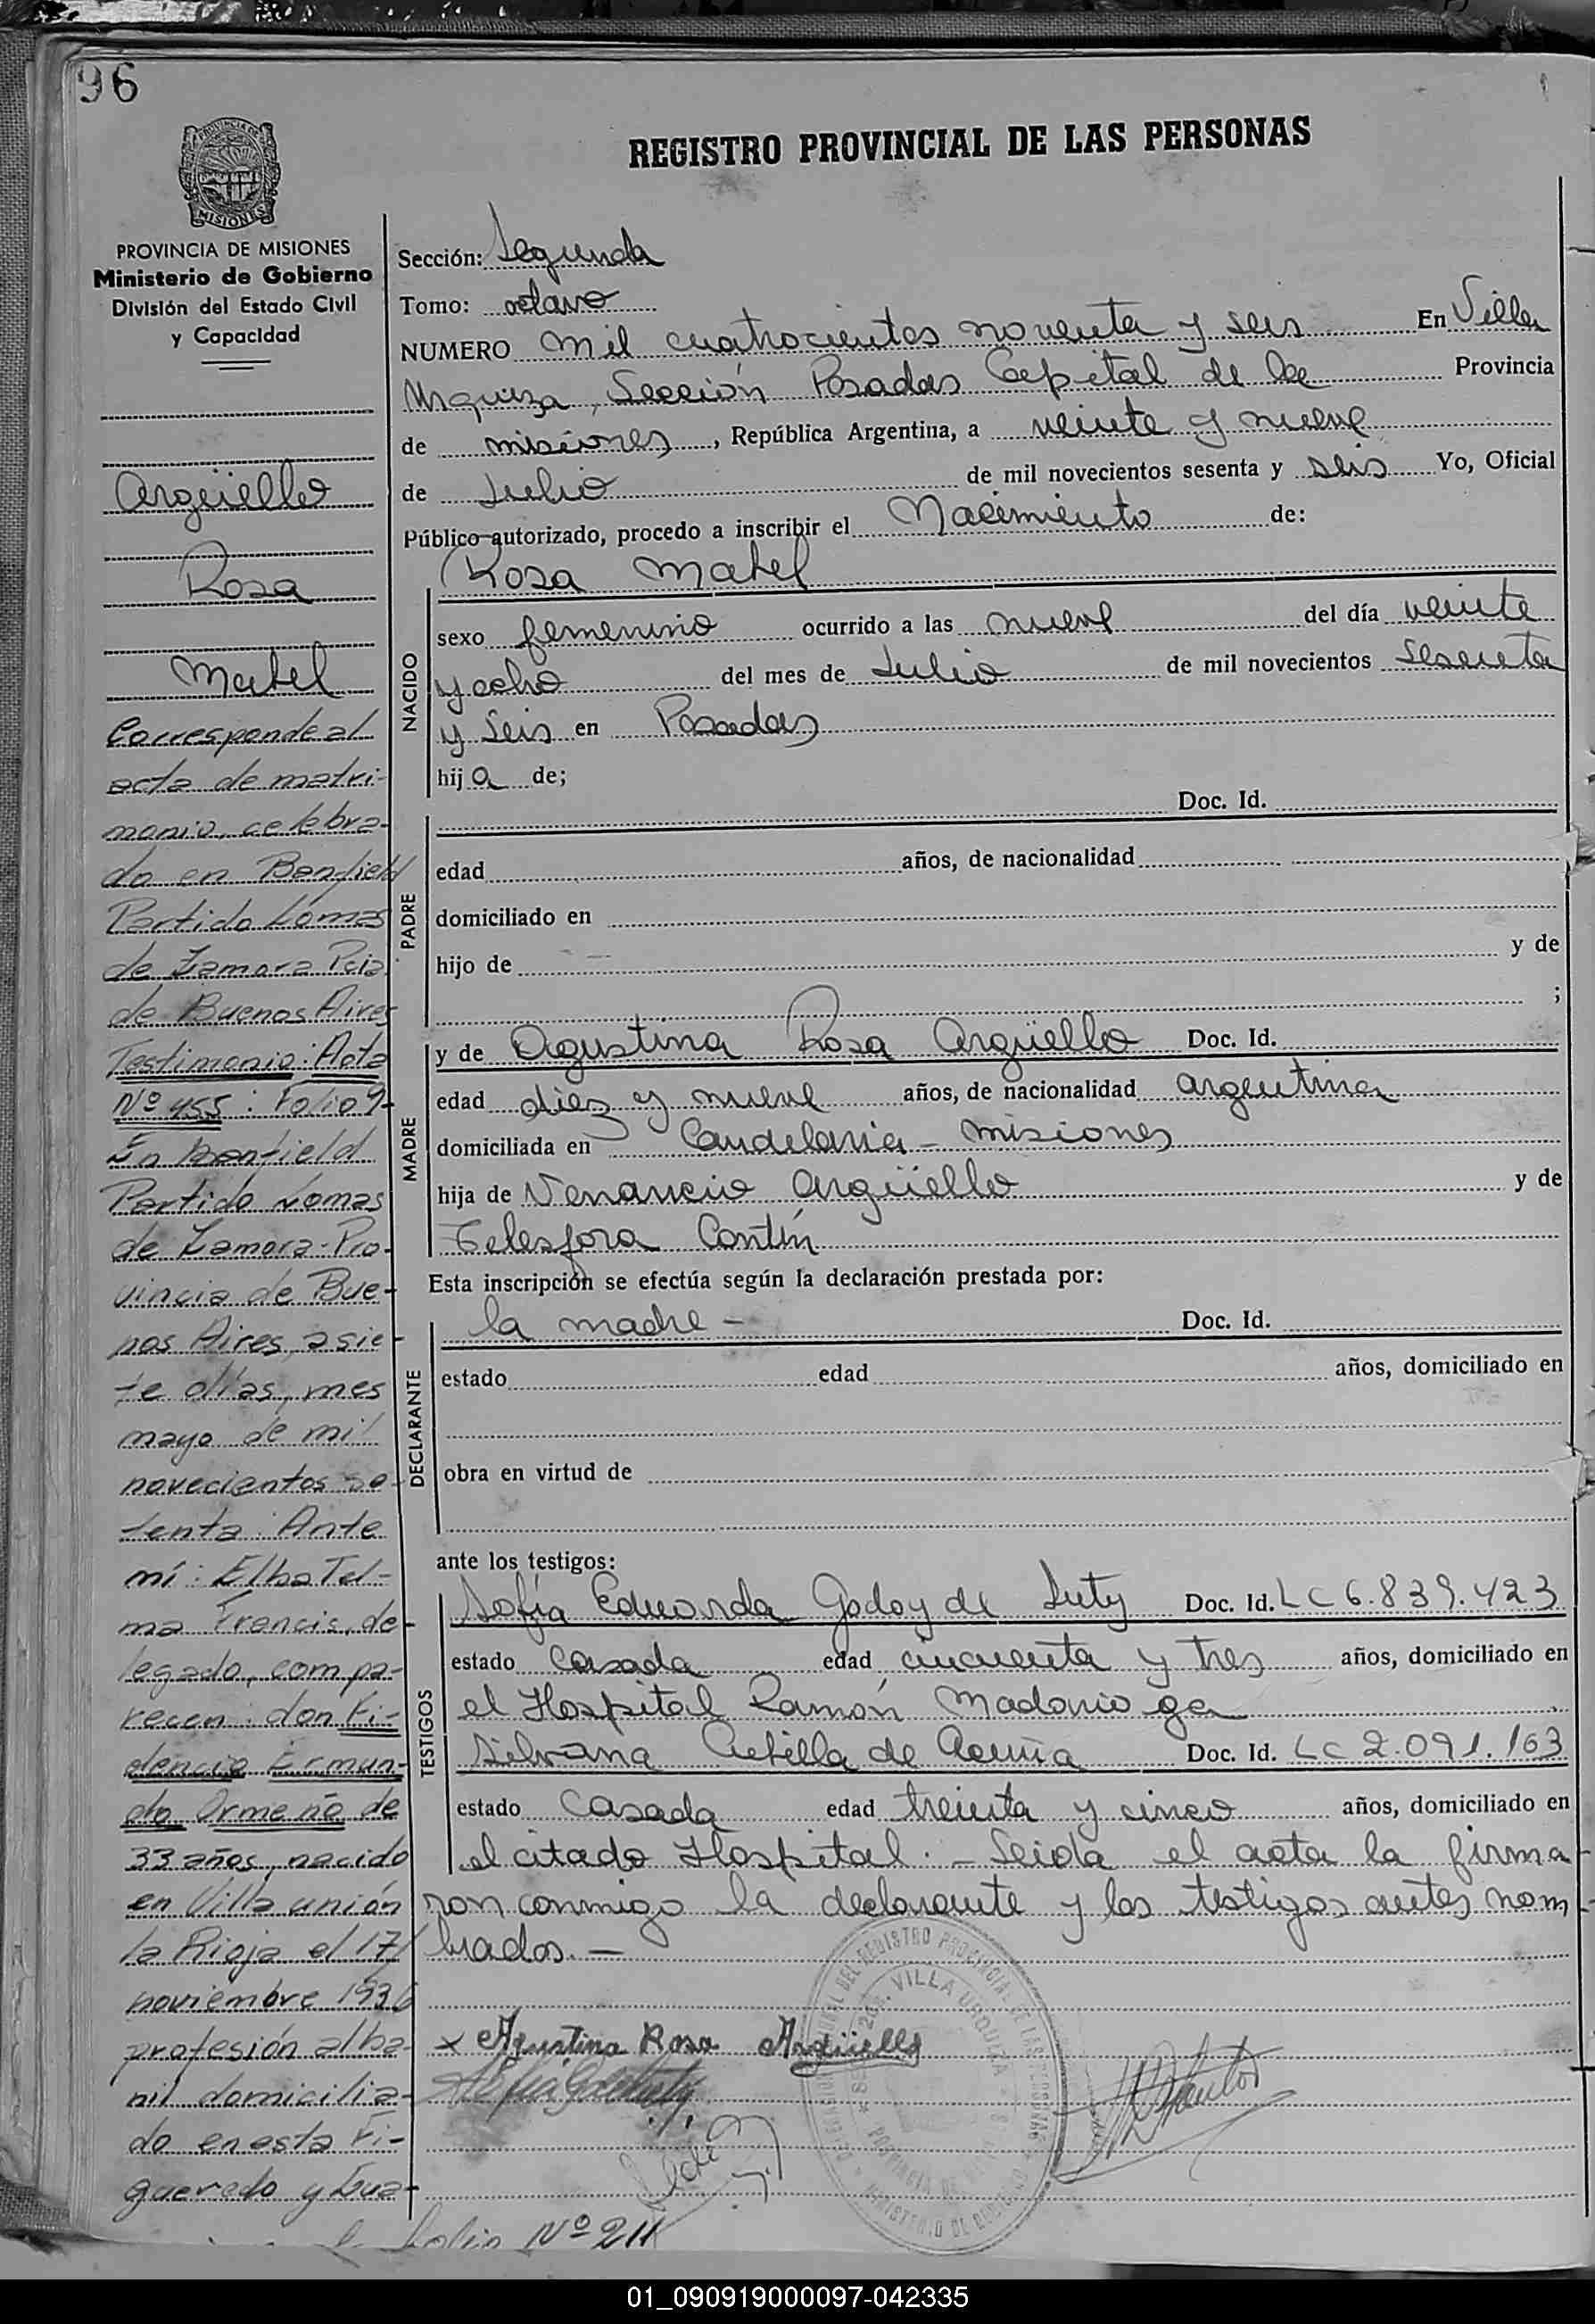 96
REGISTRO PROVINCIAL DE LAS PERSONAS
PROVINCIA DE MISIONES
Ministerio de Gobierno
División del Estado Civil
y Capacidad
Argüello
Rosa
Mabel
Corresponde al
acta de matri-
monio, celebra-
do en Banfield
Partido Lomas
de Zamora Pcia.
de Buenos Aires
Testimonio: Acta
Nº 455: Folio 9-
En Banfield
Partido Lomas
de Zamora-Pro-
vincia de Bue-
nos Aires, a sie-
te días, mes
mayo de mil
novecientos se-
tenta. Ante
mí: Elba Tel-
ma Francis, de-
legado, compa-
recen: don Fi-
dencio Ermun-
do Ormeño de
33 años, nacido
en Villa unión
La Rioja el 17/
noviembre 1936
profesión alba-
nil domicilia-
do en esta Fi-
gueredo y Gua-
folio Nº 211
Sección: Segunda
Tomo: octavo
NUMERO mil cuatrocientos noventa y seis En Villa
Urquiza, Sección Posadas Capital de la Provincia
de misiones, República Argentina, a veinte y nueve
de Julio de mil novecientos sesenta y seis Yo, Oficial
Público autorizado, procedo a inscribir el Nacimiento de:
Rosa Mabel
NACIDO
sexo femenino ocurrido a las nueve del día veinte
y ocho del mes de Julio de mil novecientos sesenta
y seis en Posadas
hija de;
PADRE
Doc. Id.
edad años, de nacionalidad
domiciliado en
hijo de y de
;
MADRE
y de Agustina Rosa Argüello Doc. Id.
edad diez y nueve años, de nacionalidad argentina
domiciliada en Candelaria - misiones
hija de Venancio Argüello y de
Telesfora Contín
Esta inscripción se efectúa según la declaración prestada por:
DECLARANTE
la madre - Doc. Id.
estado edad años, domiciliado en
obra en virtud de
ante los testigos:
TESTIGOS
Sofía Eduarda Godoy de Luty Doc. Id. LC 6.839.423
estado casada edad cincuenta y tres años, domiciliado en
el Hospital Ramón Madariaga
Silvana de Acuña Doc. Id. LC 2.091.163
estado casada edad treinta y cinco años, domiciliado en
el citado Hospital. - Leida el acta la firma-
ron conmigo la declarante y los testigos antes nom
brados. -
x Agustina Rosa Argüello
VILLA URQUIZA
01_090919000097-042335